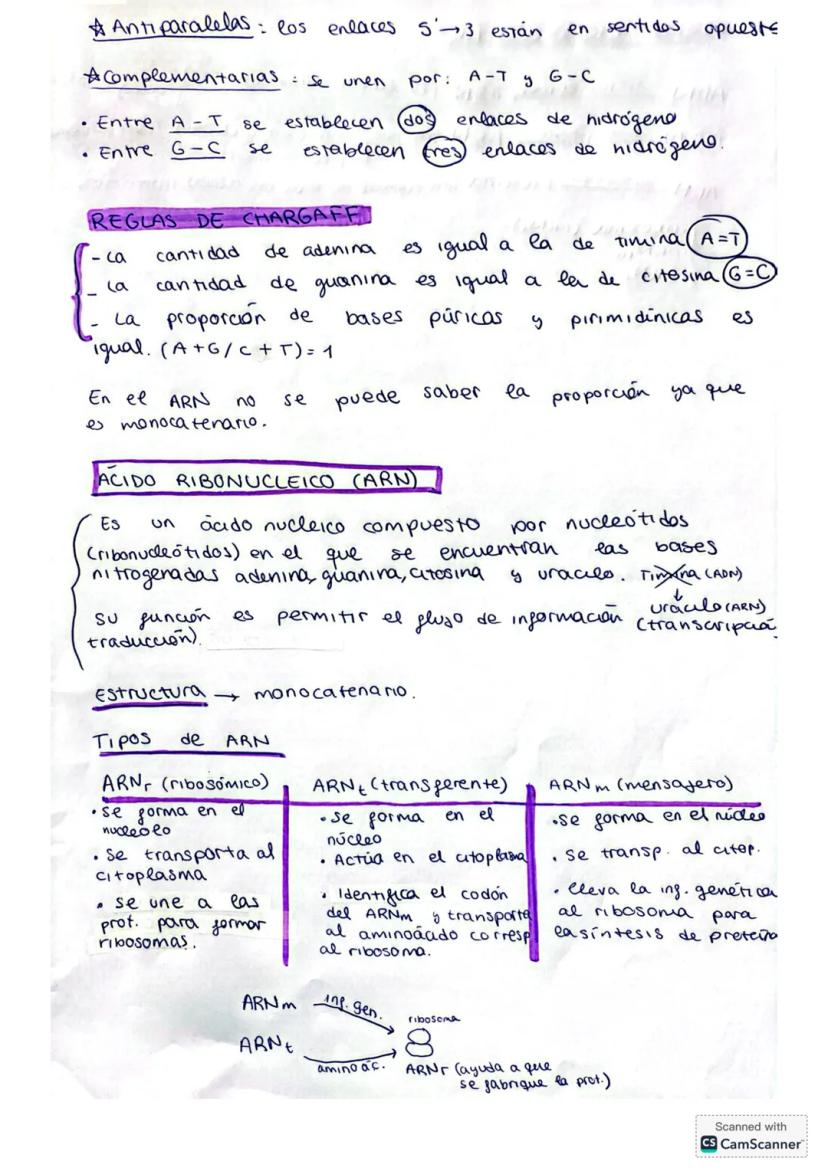 ☆Antiparalelas: los enlaces 5'→3 están en sentidos opueste
☆Complementarias: se unen por: A-T y G-C
• Entre A-T se establecen dos enlaces de hidrógeno
• Entre G-C se establecen tres enlaces de hidrógeno.
REGLAS DE CHARGAFF
- La cantidad de adenina es igual a la de timina A=T
- La cantidad de guanina es igual a la de citosina G=C
- La proporción de bases púricas y pirimidínicas es
igual. (A+G/C+T)=1
En el ARN no se puede saber la proporción ya que
es monocatenario.
ÁCIDO RIBONUCLEICO (ARN)
Es un ácido nucleico compuesto por nucleótidos
(ribonucleótidos) en el que se encuentran las bases
nitrogenadas adenina, guanina, citosina y uracilo. Timina (ADN)
↓
uracilo (ARN)
Su función es permitir el flujo de información (transcripción
traducción).
Estructura → monocatenario.
Tipos de ARN
ARNr (ribosómico)
• Se forma en el
nucleolo
• Se transporta al
citoplasma
• Se une a las
prot. para formar
ribosomas.
ARNt (transferente)
• Se forma en el
núcleo
• Actúa en el citoplasma
• Identifica el codón
del ARNm y transporta
al aminoácido corresp
al ribosoma.
ARNm (mensajero)
• Se forma en el núcleo
• Se transp. al citop.
• Lleva la inf. genética
al ribosoma para
la síntesis de proteína
ARNm inf. gen.
ribosoma
ARNt
aminoác. ARNr (ayuda a que
se fabrique la prot.)
Scanned with
CS CamScanner